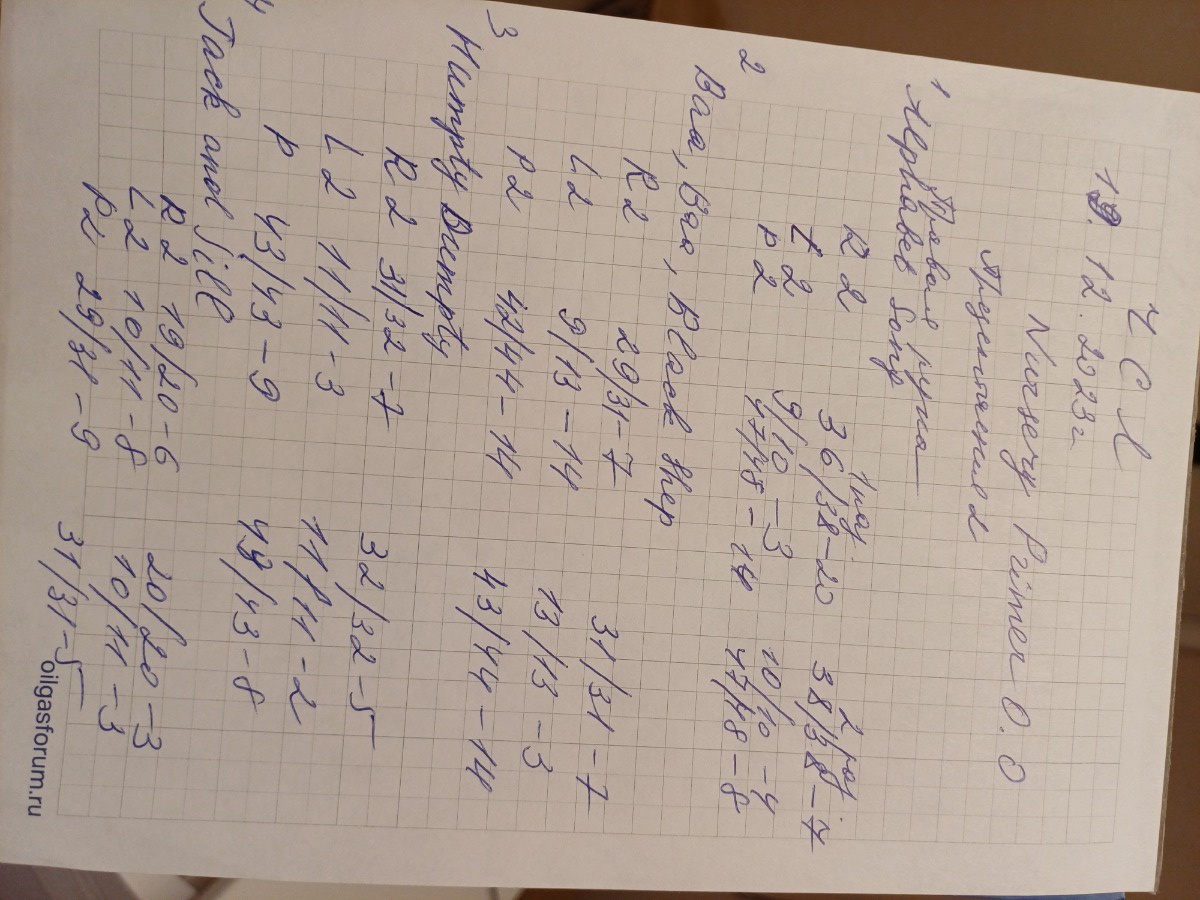 Ч С Л
19. 12. 2023г
Nursery Primer 0.0
Правая рука
1 Alphabet Song
1 раз. 2 раз.
R 2 36/38-20 38/38-7
L 2 9/10-3 10/10-4
P 2 47/48-14 47/48-8
2
Baa, Baa, Black Shep
R 2 29/31-7 31/31-7
L 2 9/13-14 13/13-3
P 2 42/44-14 43/44-14
3
Humpty Dumpty
R 2 31/32-7 32/32-5
L 2 11/11-3 11/11-2
P 43/43-9 43/43-8
4
Jack and Jill
R 2 19/20-6 20/20-3
L 2 10/11-8 10/11-3
P2 29/31-9 31/31-5
oilgasforum.ru